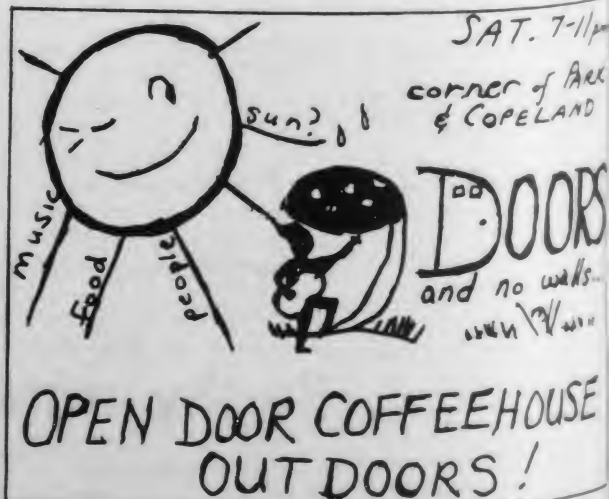 SAT. 7-11pm
corner of PARK
& COPELAND
sun?
music
food
people
DOORS
and no walls...
OPEN DOOR COFFEEHOUSE
OUTDOORS!